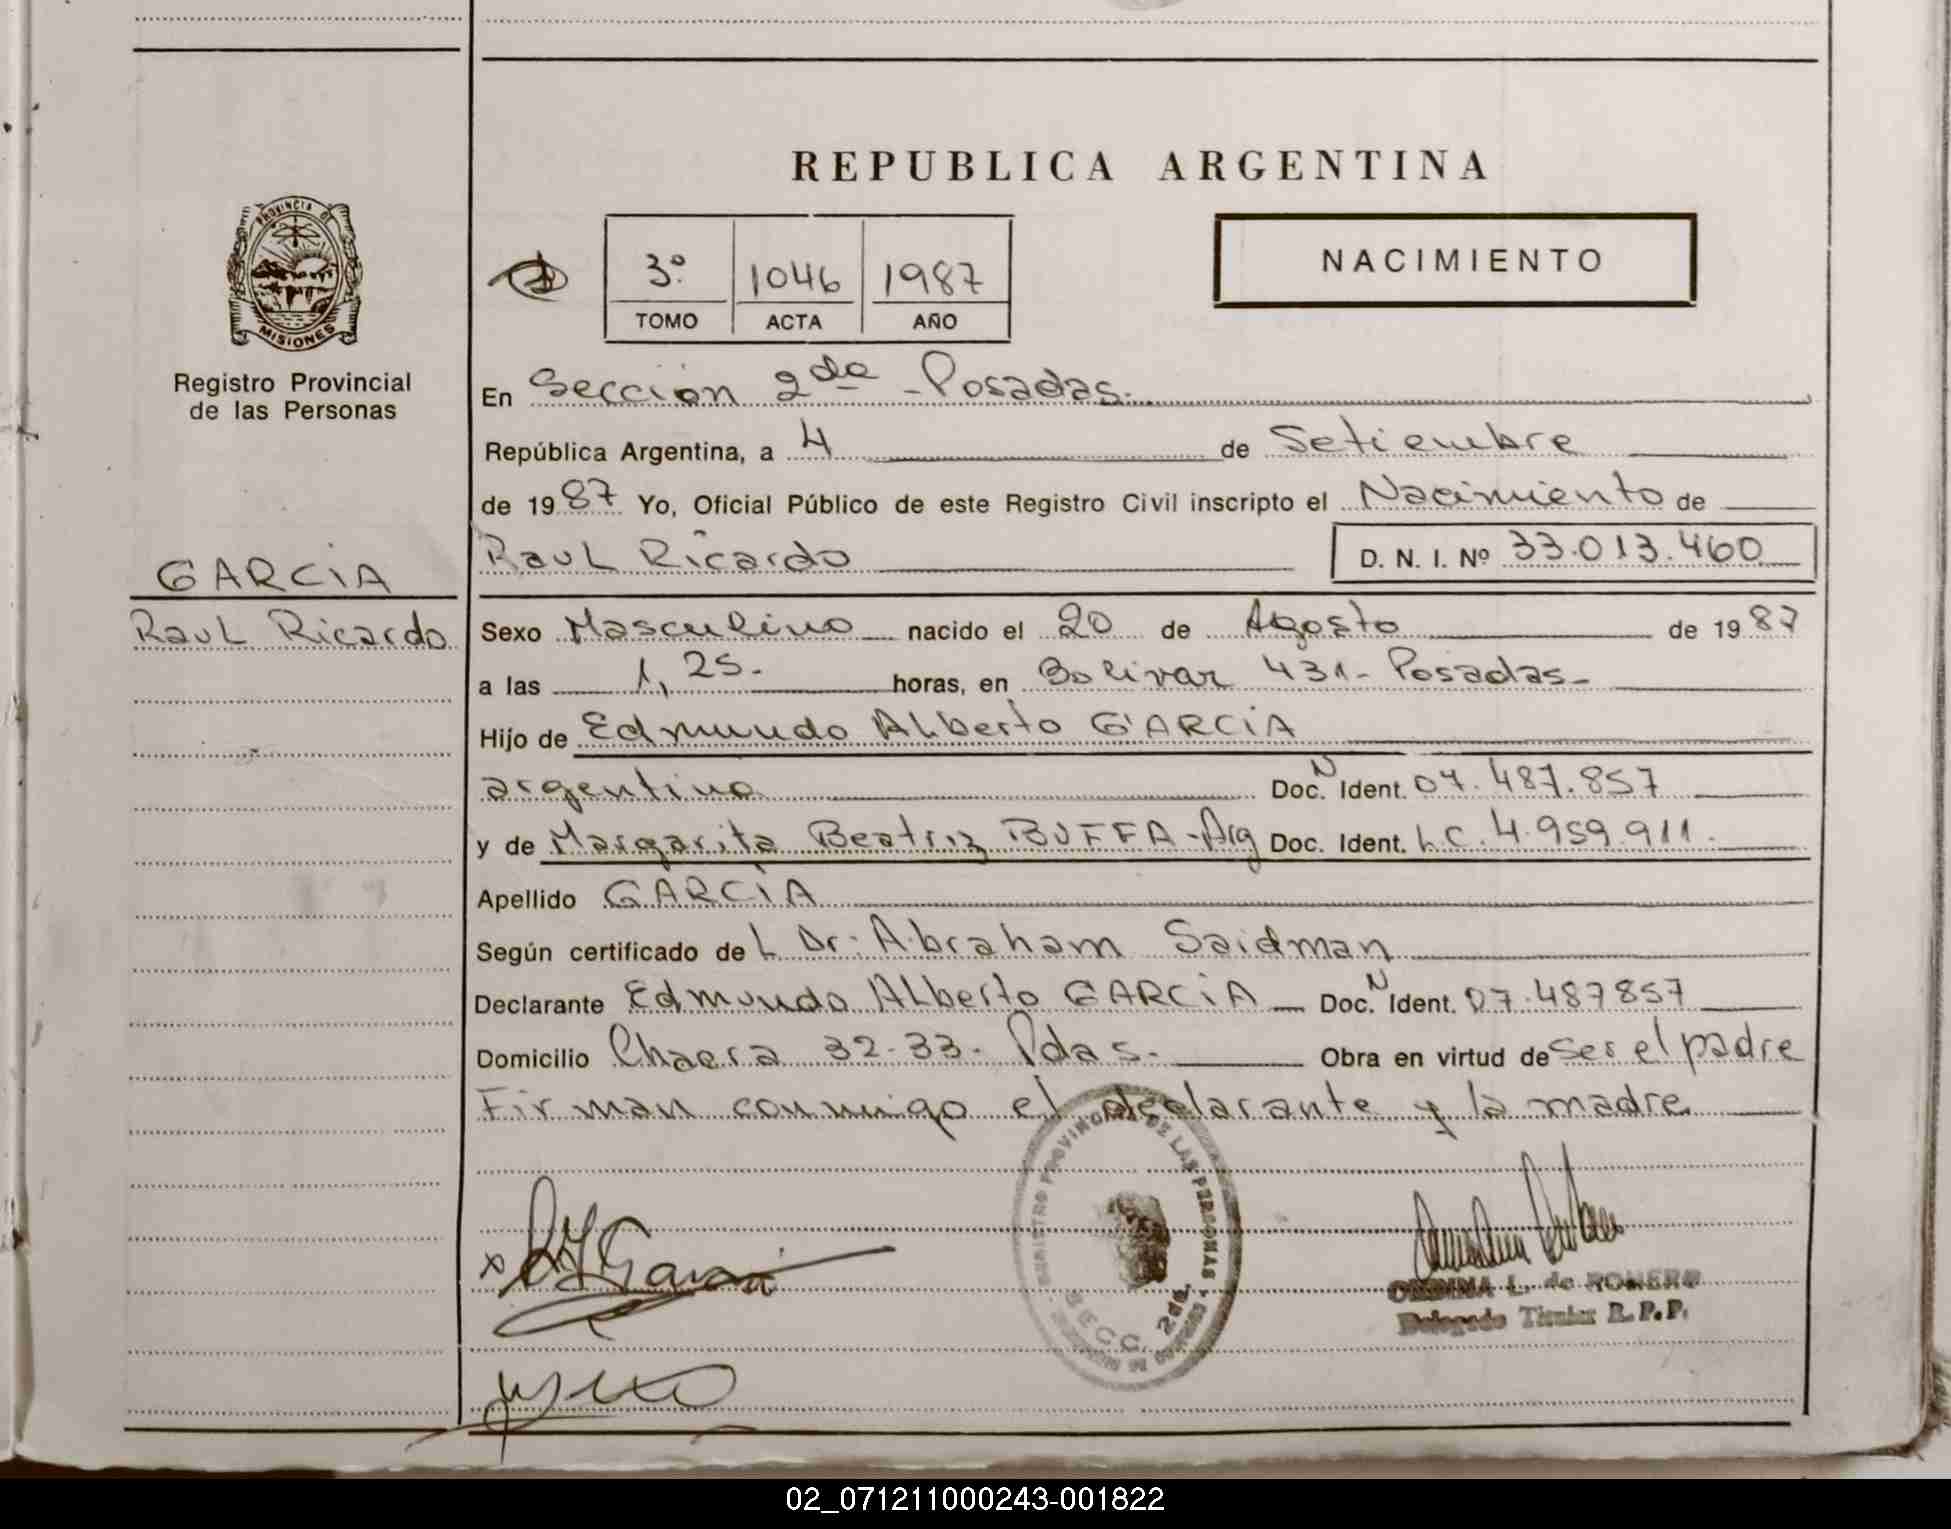 REPUBLICA ARGENTINA
PROVINCIA DE
MISIONES
Registro Provincial
de las Personas
3º 1046 1987
TOMO ACTA AÑO
NACIMIENTO
En Sección 2da - Posadas.
República Argentina, a 4 de Setiembre
de 1987 Yo, Oficial Público de este Registro Civil inscripto el Nacimiento de
Raul Ricardo D. N. I. Nº 33.013.460
GARCIA
Raul Ricardo
Sexo Masculino nacido el 20 de Agosto de 1987
a las 1,25.- horas, en Bolivar 431 - Posadas -
Hijo de Edmundo Alberto GARCIA
argentino Doc. N Ident. 07.487.857
y de Margarita Beatriz BUFFA - Arg Doc. Ident. L.C. 4.959.911.
Apellido GARCIA
Según certificado del Dr. Abraham Saidman
Declarante Edmundo Alberto GARCIA Doc. N Ident. 07.487857
Domicilio Chacra 32-33- Pdas. Obra en virtud de ser el padre
Firman conmigo el declarante y la madre
REGISTRO PROVINCIAL DE LAS PERSONAS
SECC. 2da.
L. de ROMERO
Delegado Titular R.P.P.
02_071211000243-001822